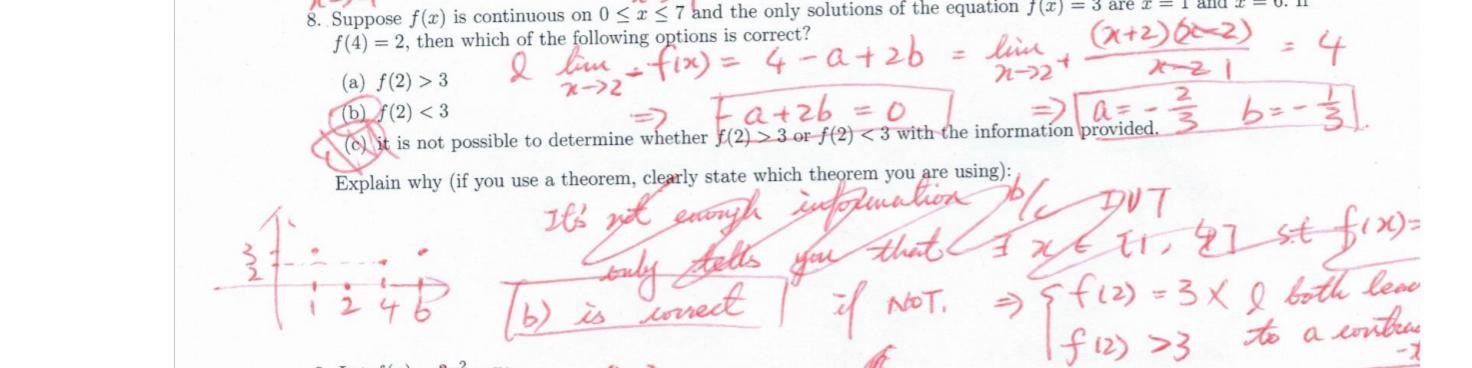 8. Suppose f(x) is continuous on 0 ≤ x ≤ 7 and the only solutions of the equation f(x) = 3 are x = 1 and x = 6. If
f(4) = 2, then which of the following options is correct?
& lim x->2⁻ f(x) = 4 - a + 2b = lim x->2⁺ (x+2)(x-2) / x-2 = 4
(a) f(2) > 3
(b) f(2) < 3
=> -a + 2b = 0 => a = -2/3 b = -1/3
(c) it is not possible to determine whether f(2) > 3 or f(2) < 3 with the information provided.
Explain why (if you use a theorem, clearly state which theorem you are using):
It's not enough information b/c IVT
only tells you that ∃ x ∈ [1, ] s.t f(x)=
3
2
1 2 4 6
(b) is correct if NOT. => { f(2) = 3 X & both
f(2) > 3 to a